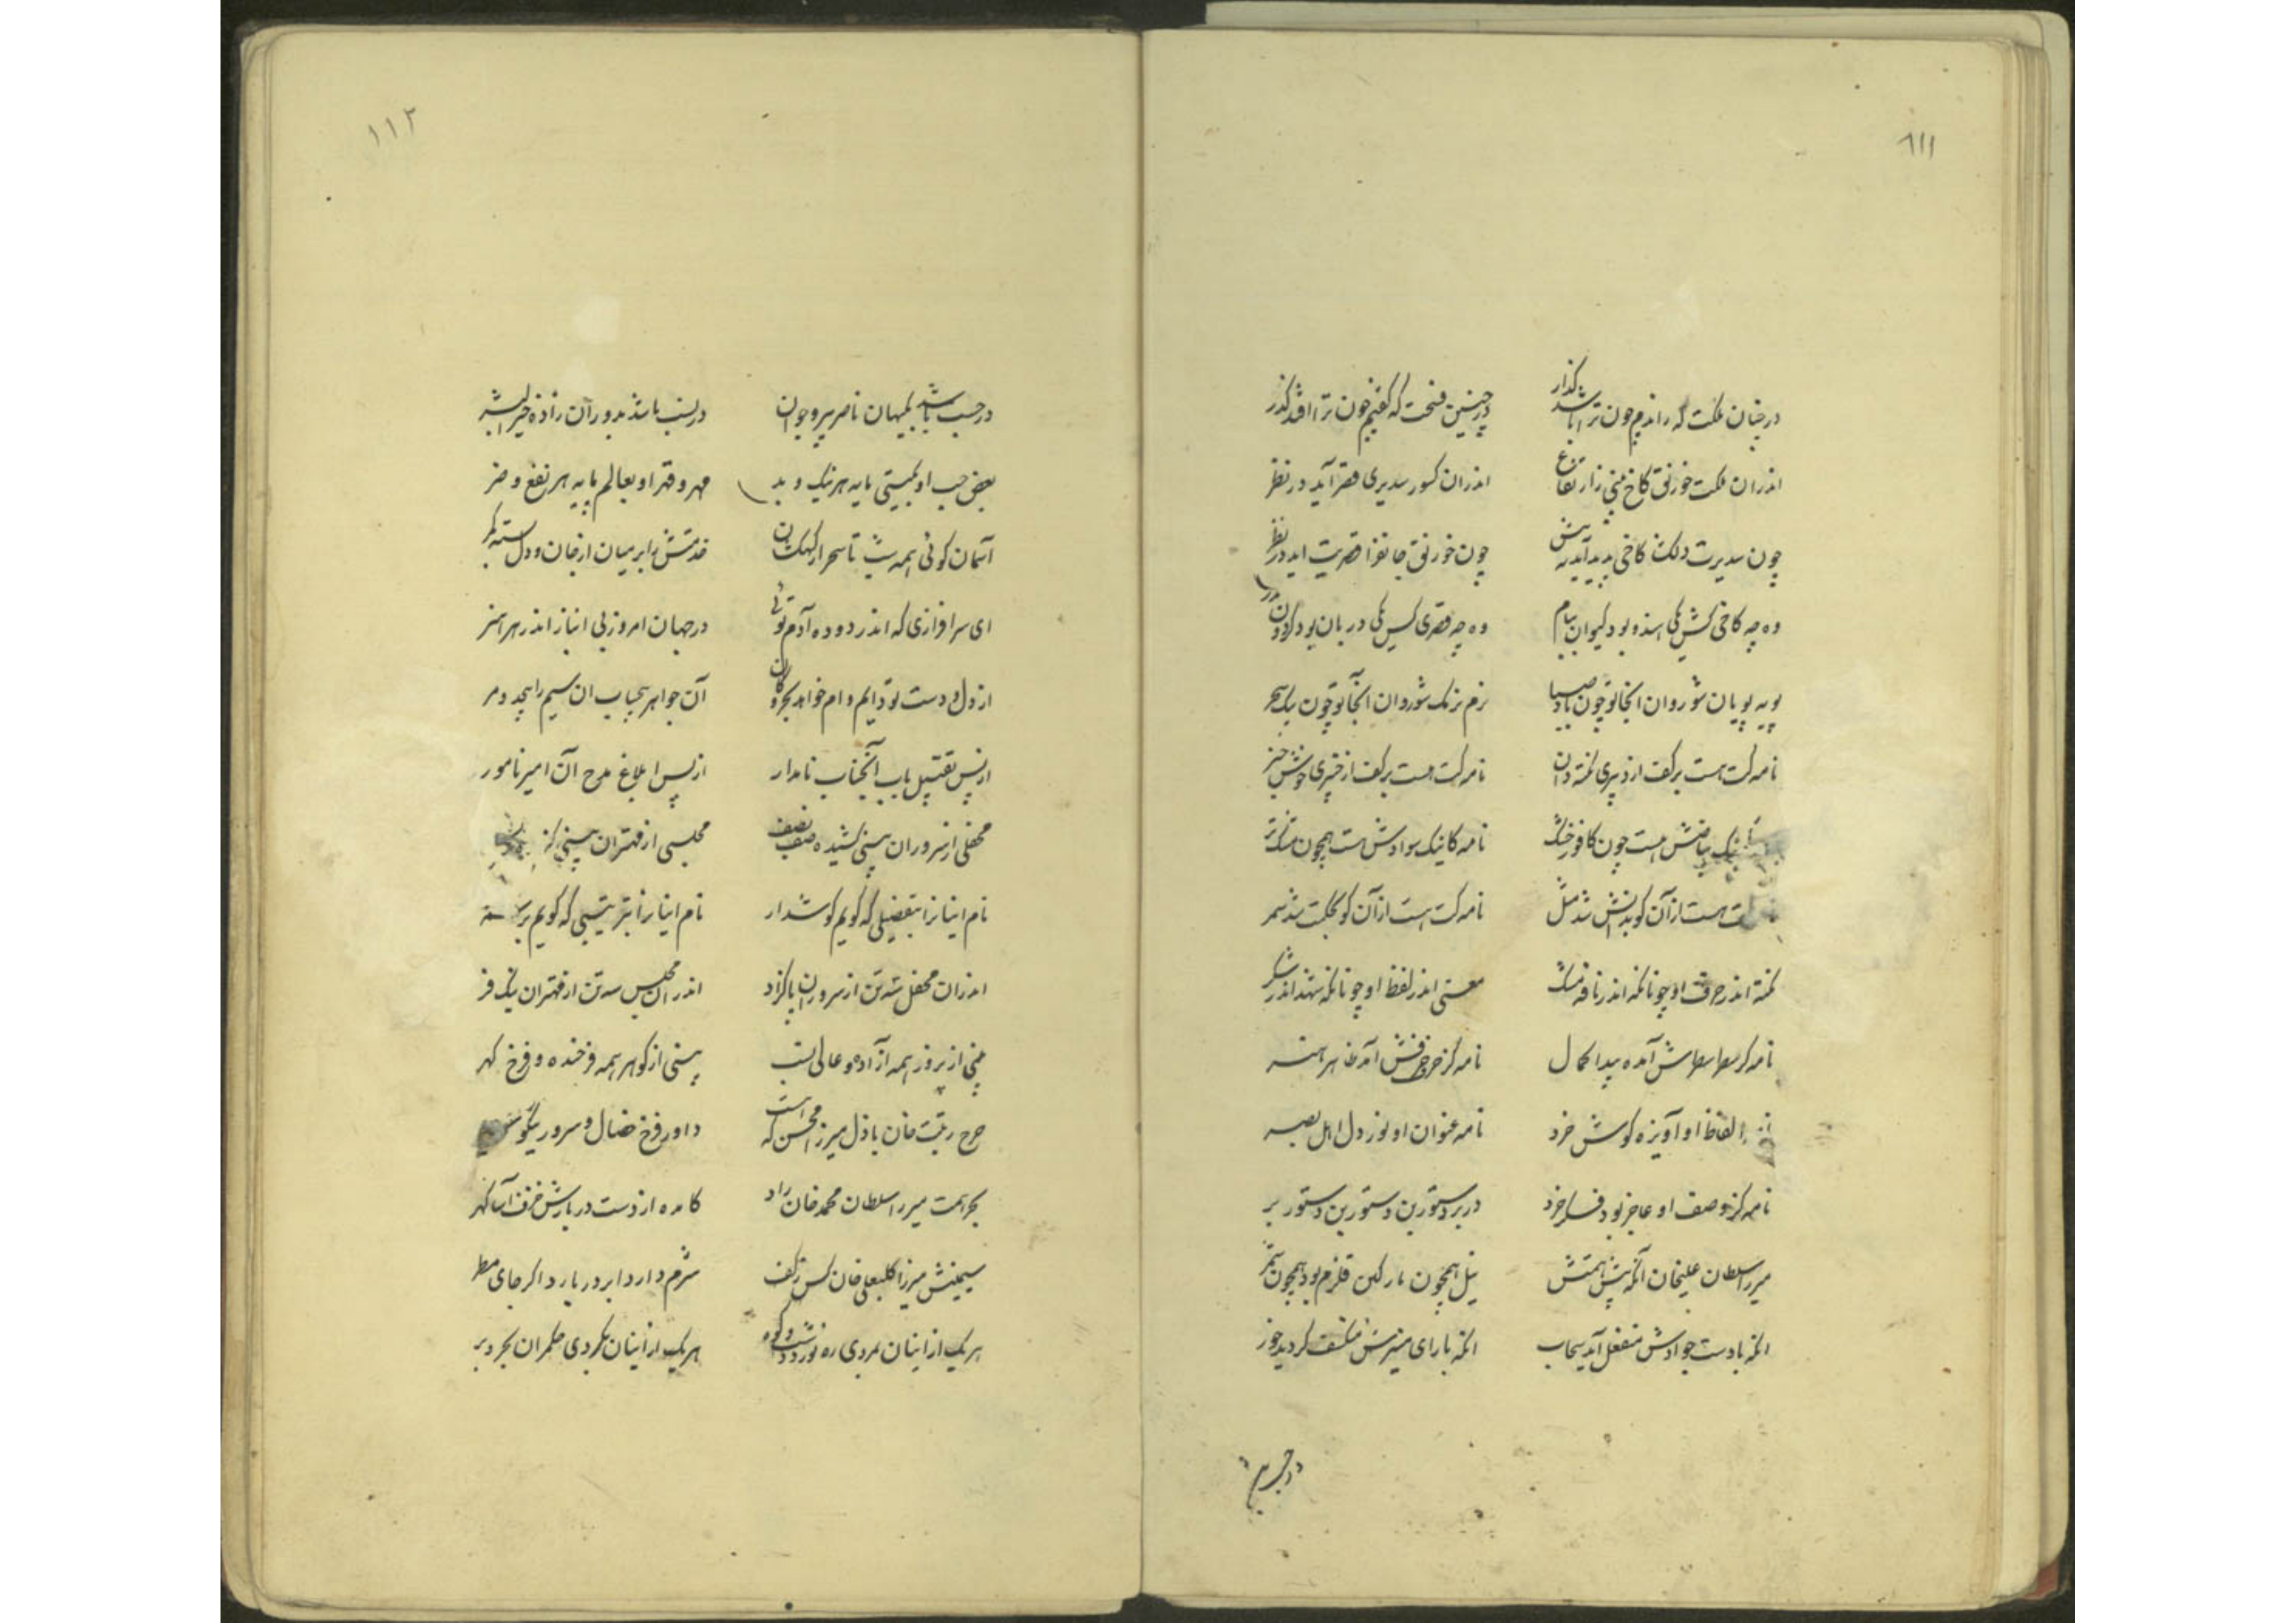 ۱۱۱
در چنان ملکت که راندم چون ترا باشد گذار در چنین فتحت که گفتم چون ترا افتد گذر
اندران ملکت خورنق کاخ بینی زارتفاع اندران کشور سدیری قصر آید در نظر
چون سدیرت دلکش کاخی پدید آید به پیش چون خورنق جانفزا قصریت اید در نظر
وه چه کاخی کش یکی هندو بود کیوان ببام وه چه قصری کس یکی دربان بود گردون بدر
پویه پویان شو روان انجا تو چون باد صبا نرم نرمک شو روان آنجا تو چون پیک سحر
نامه کت هست بر کف از دبیری نکته دان نامه کت هست بر کف از خبیری خوش خبر
بیاضش هست چون کافور خشک نامه کاینک سوادش هست همچون مشک تر
هست از آن کو بدانش شد مثل نامه کت هست از آن کو بحکمت شد سمر
نکته اندر حرف او چونانکه اندر نافه مشک معنی اندر لفظ او چونانکه شهد اندر شکر
نامه کز سطر سطرش آمده پیدا کمال نامه کز حرف حرفش آمد ظاهر هنر
الفاظ او آویزه گوش خرد نامه عنوان او نور دل اهل بصر
نامه کز وصف او عاجز بود فکر خرد در بر دستور بن دستور بن دستور بر
میرزا سلطان علیخان آنکه پیش همتش نیل همچون پارگین قلزم بود همچون شمر
انکه با دست جوادش منفعل آید سحاب انکه با رای منیرش منکسف گردید خور
در حسب
۱۱۲
در حسب باشد بگیهان ناصر پیر و جوان در نسب باشد بدوران زاده خیر البشر
بغض و حب او بگیتی مایه هر نیک و بد مهر و قهر او بعالم پایه هر نفع و ضر
آسمان گوئی همه شب تا سحر از کهکشان خدمتش را بر میان از جان و دل بسته کمر
ای سرافرازی که اندر دوده آدم توئی در جهان امروز بی انباز اندر هر هنر
از دل و دست تو دایم وام خواهد بحر و کان آن جواهر بیحساب ان سیم را بیحد و مر
از پس تقبیل باب آنجناب نامدار از پس ابلاغ مدح آن امیر نامور
محفلی از سروران بینی کشیده صف بصف مجلسی از مهتران بینی
نام اینانرا بتفضیلی که گویم گوشدار نام اینانرا بترتیبی که گویم بر
اندران محفل شه تن از سروران پاکزاد اندر آن مجلس سه تن از مهتران نیک فر
بینی از پرور همه آزاده و عالی نسب بینی از گوهر همه فرخنده و فرخ گهر
چرخ رتبت خان باذل میرزا محسن که هست داور فرخ خصال و سرور نیکو سیر
بحر همت میرزا سلطان محمد خان راد کامده از دست دربارش خزف آسا گهر
سیمینش میرزا کلبعلی خان کس ز کف شرم دارد ابر دربارد اگر جای مطر
هریک از اینان بمردی ره نورد دشت و کوه هریک از اینان بگردی حکمران بحر و بر